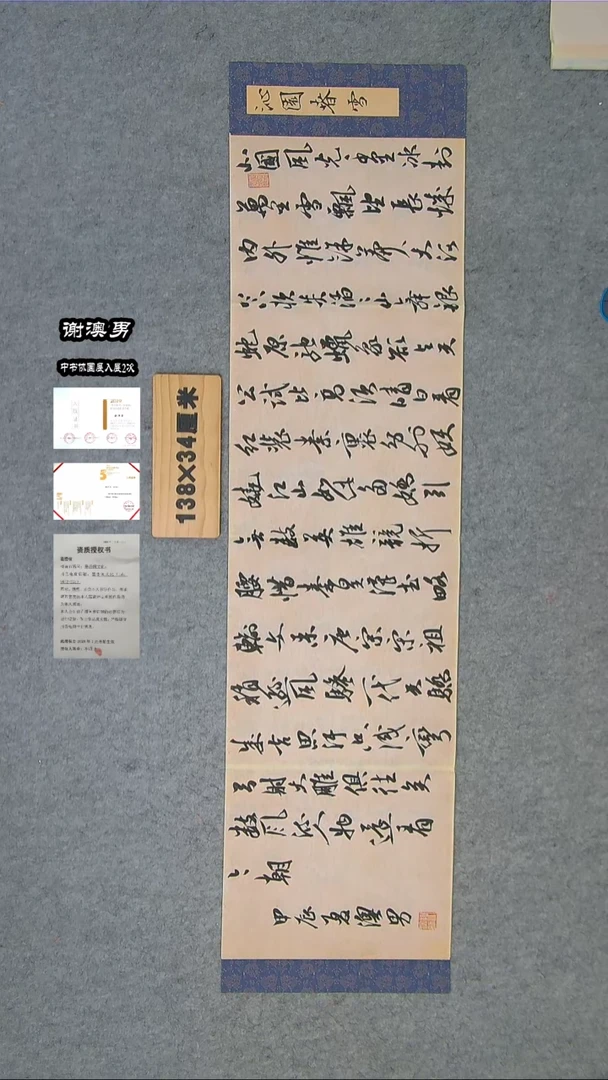 沁園春雪
北國風光千里冰封
萬里雪飄望長城
內外惟餘莽莽大河
上下頓失滔滔山舞銀
蛇原馳蠟象欲與天
公試比高須晴日看
紅裝素裹分外妖
嬈江山如此多嬌引
無數英雄競折
腰惜秦皇漢武略
輸文采唐宗宋祖
稍遜風騷一代天驕
成吉思汗只識彎
弓射大雕俱往矣
數風流人物還看
今朝
甲辰夏澳男
谢澳男
中书协国展入展2次
138×34厘米
资质授权书